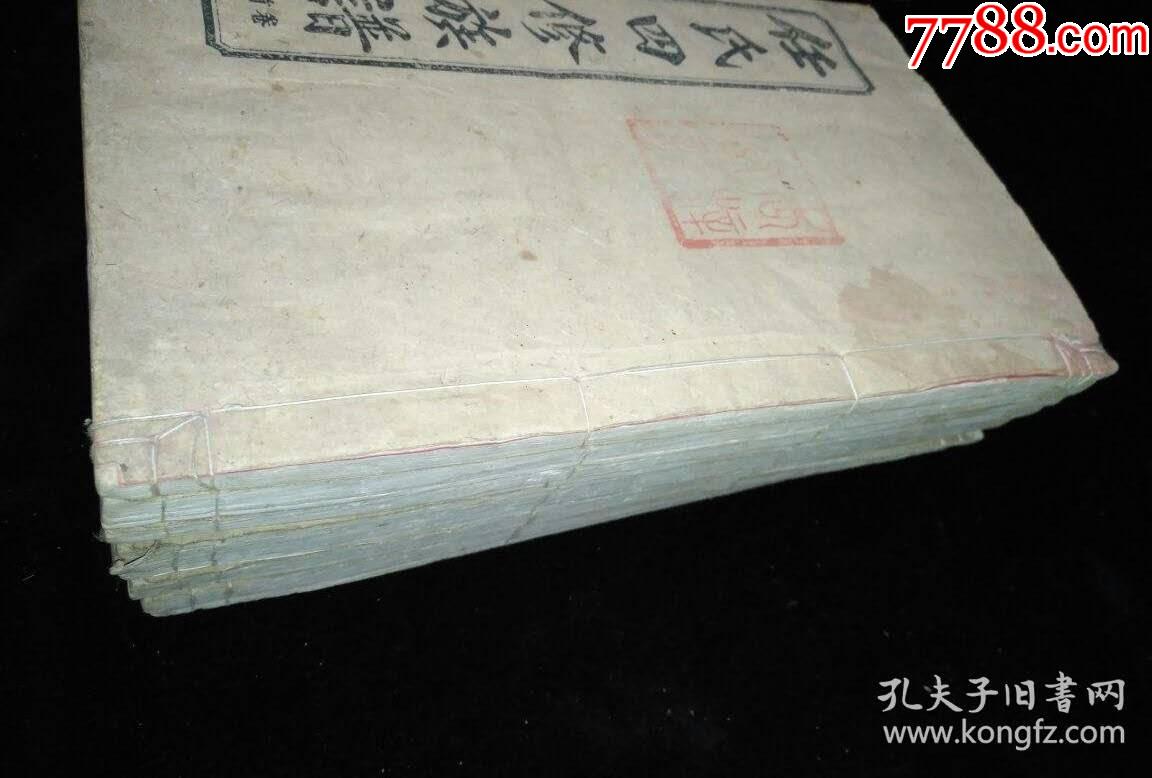 任氏四修族譜
首卷
7788.com
孔夫子旧書网
www.kongfz.com